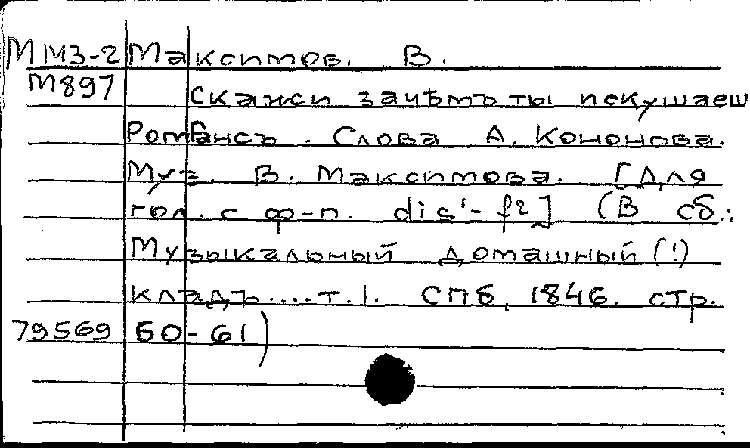 М МЗ-2 Максимов. В.
М897 Скажи зачѣмъ ты искушаеш
Романсъ. Слова А. Кононова.
Муз. В. Максимова. [Для
гол. с ф-п. dis'- f2] (В сб.:
Музыкальный домашный (!)
кладъ....т.1. СПб, 1846. стр.
79569 60-61)